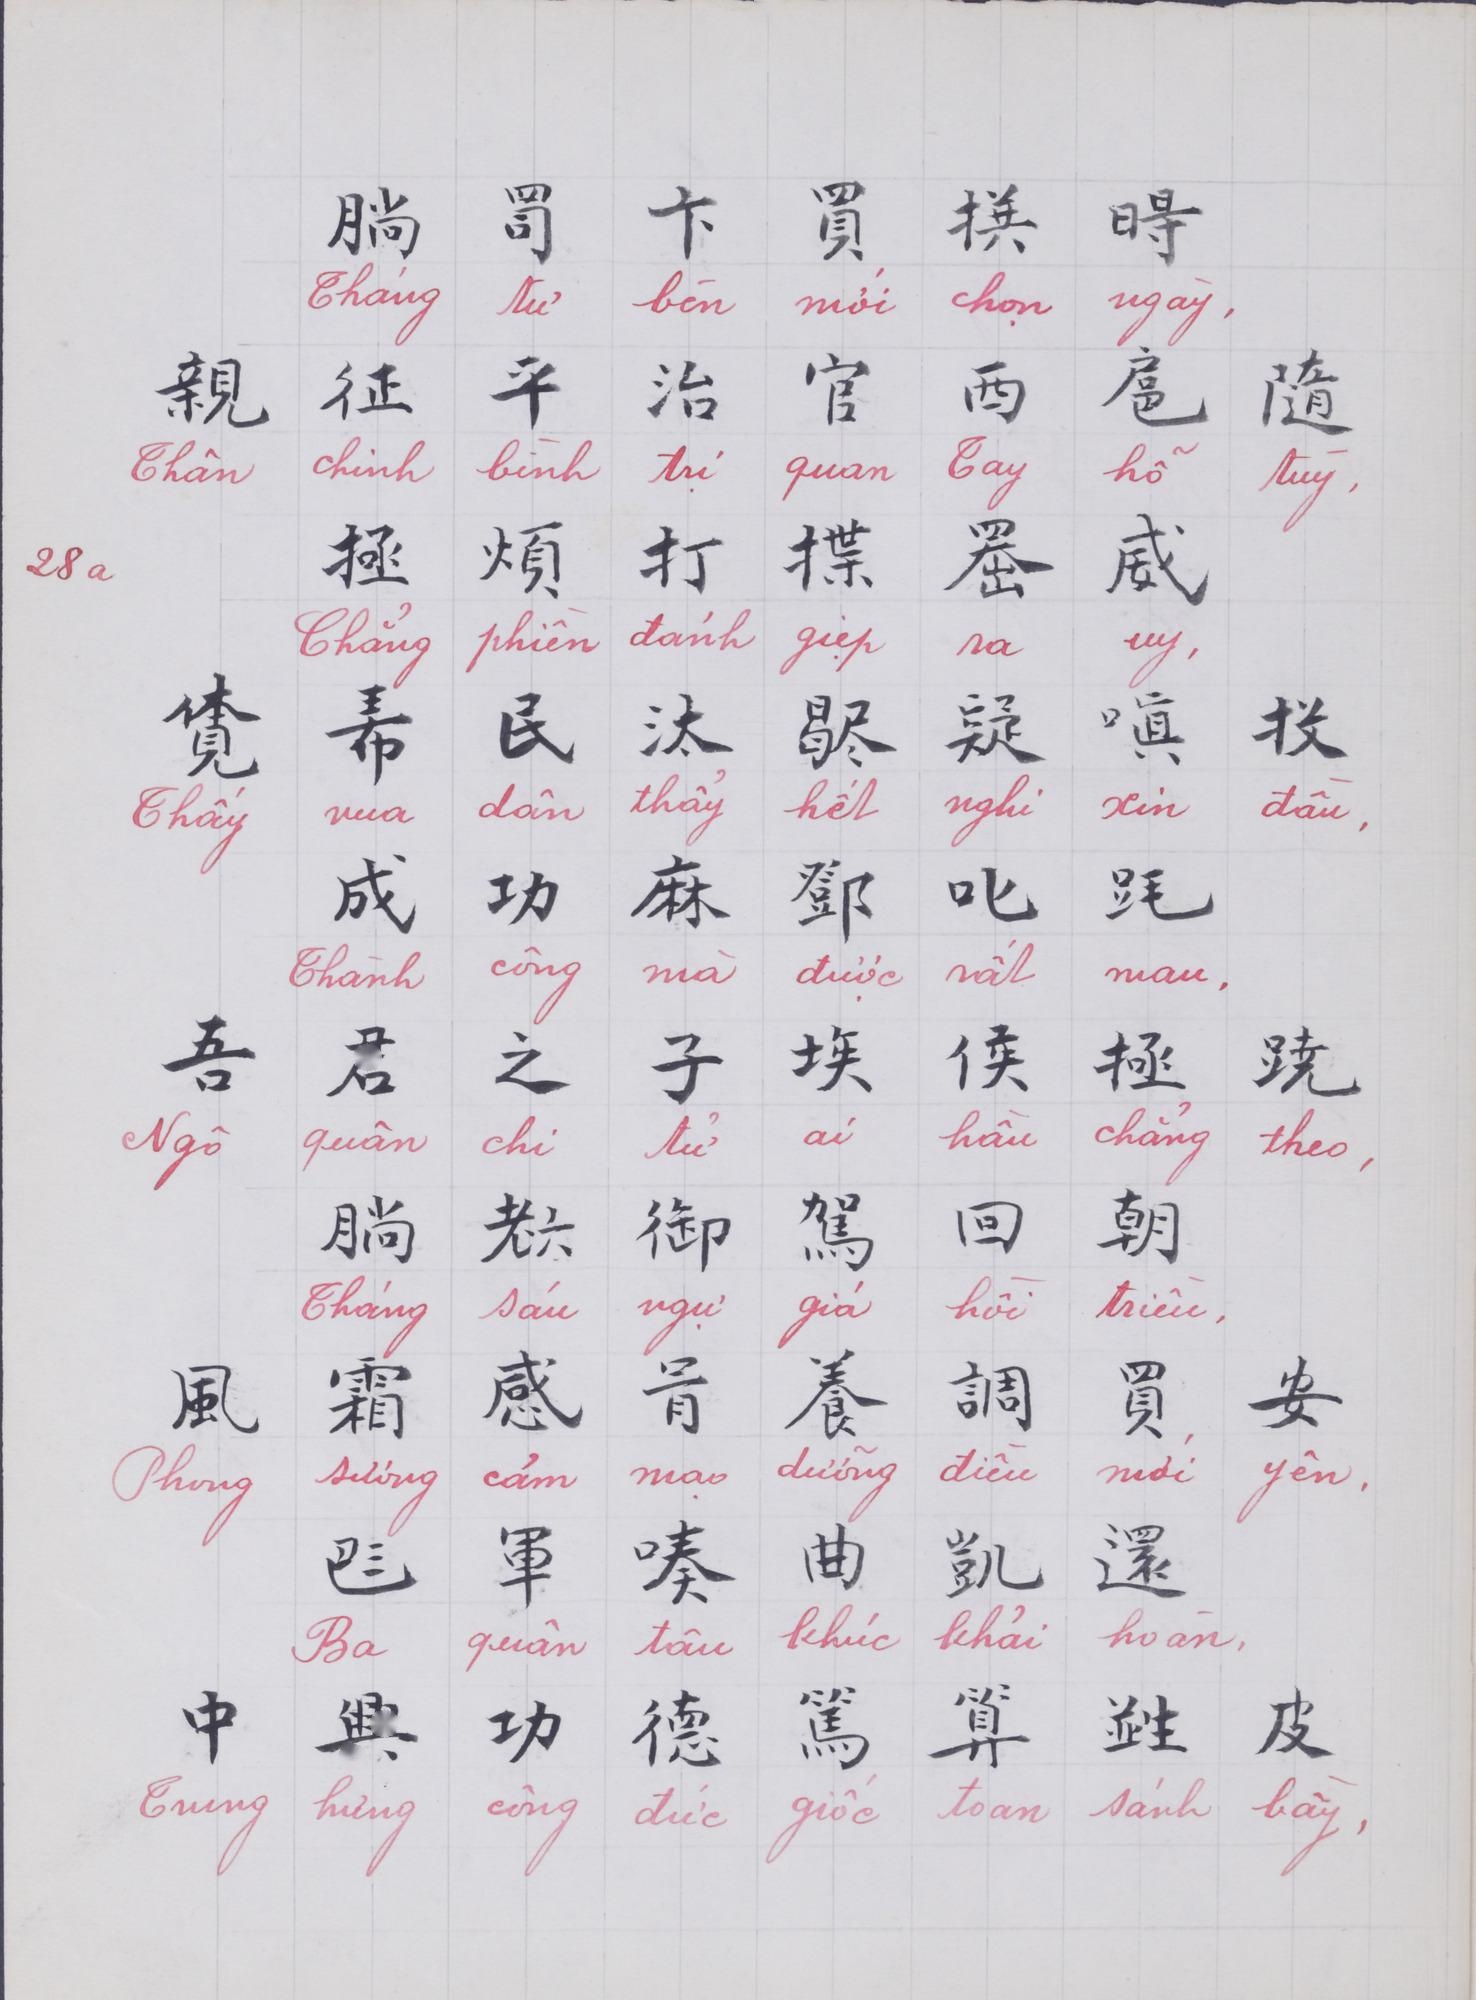 𣎃 罰 卞 買 撰 𣇞
Tháng tư bèn mới chọn ngày,
親 征 平 治 官 西 扈 隨
Thân chinh bình trị quan Tay hỗ tùy,
28a
拯 煩 打 擛 𦋦 威
Chẳng phiền đánh giẹp ra uy,
𧡊 𢂜 民 汰 歇 疑 嗔 投
Thấy vua dân thảy hết nghi xin đầu,
成 功 麻 鄧 叱 𨀈
Thành công mà được rất mau,
吾 君 之 子 埃 侯 拯 蹺
Ngô quân chi tử ai hầu chẳng theo,
𣎃 𦒹 御 駕 回 朝
Tháng sáu ngự giá hồi triều,
風 霜 感 冐 養 調 買 安
Phong sương cảm mạo dưỡng điều mới yên,
𠀧 軍 嗪 曲 凱 還
Ba quân tâu khúc khải hoàn,
中 興 功 德 篤 算 𤯩 皮
Trung hưng công đức giốc toan sánh bầy,